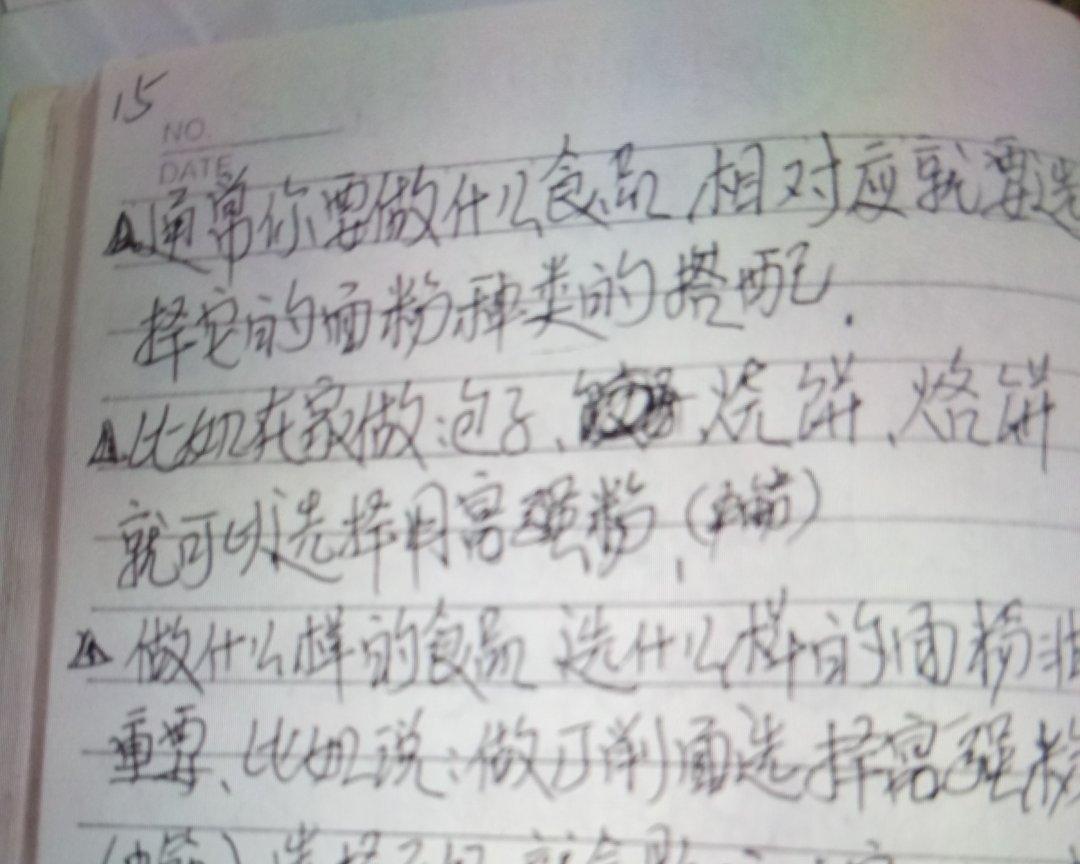 15
NO.
DATE
通常你要做什么食品,相对应就要选
择它的面粉种类的搭配.
比如在家做:包子、烧饼、烙饼
就可以选择用富强粉,(中筋)
做什么样的食品选什么样的面粉非
重要、比如说:做刀削面选择富强粉